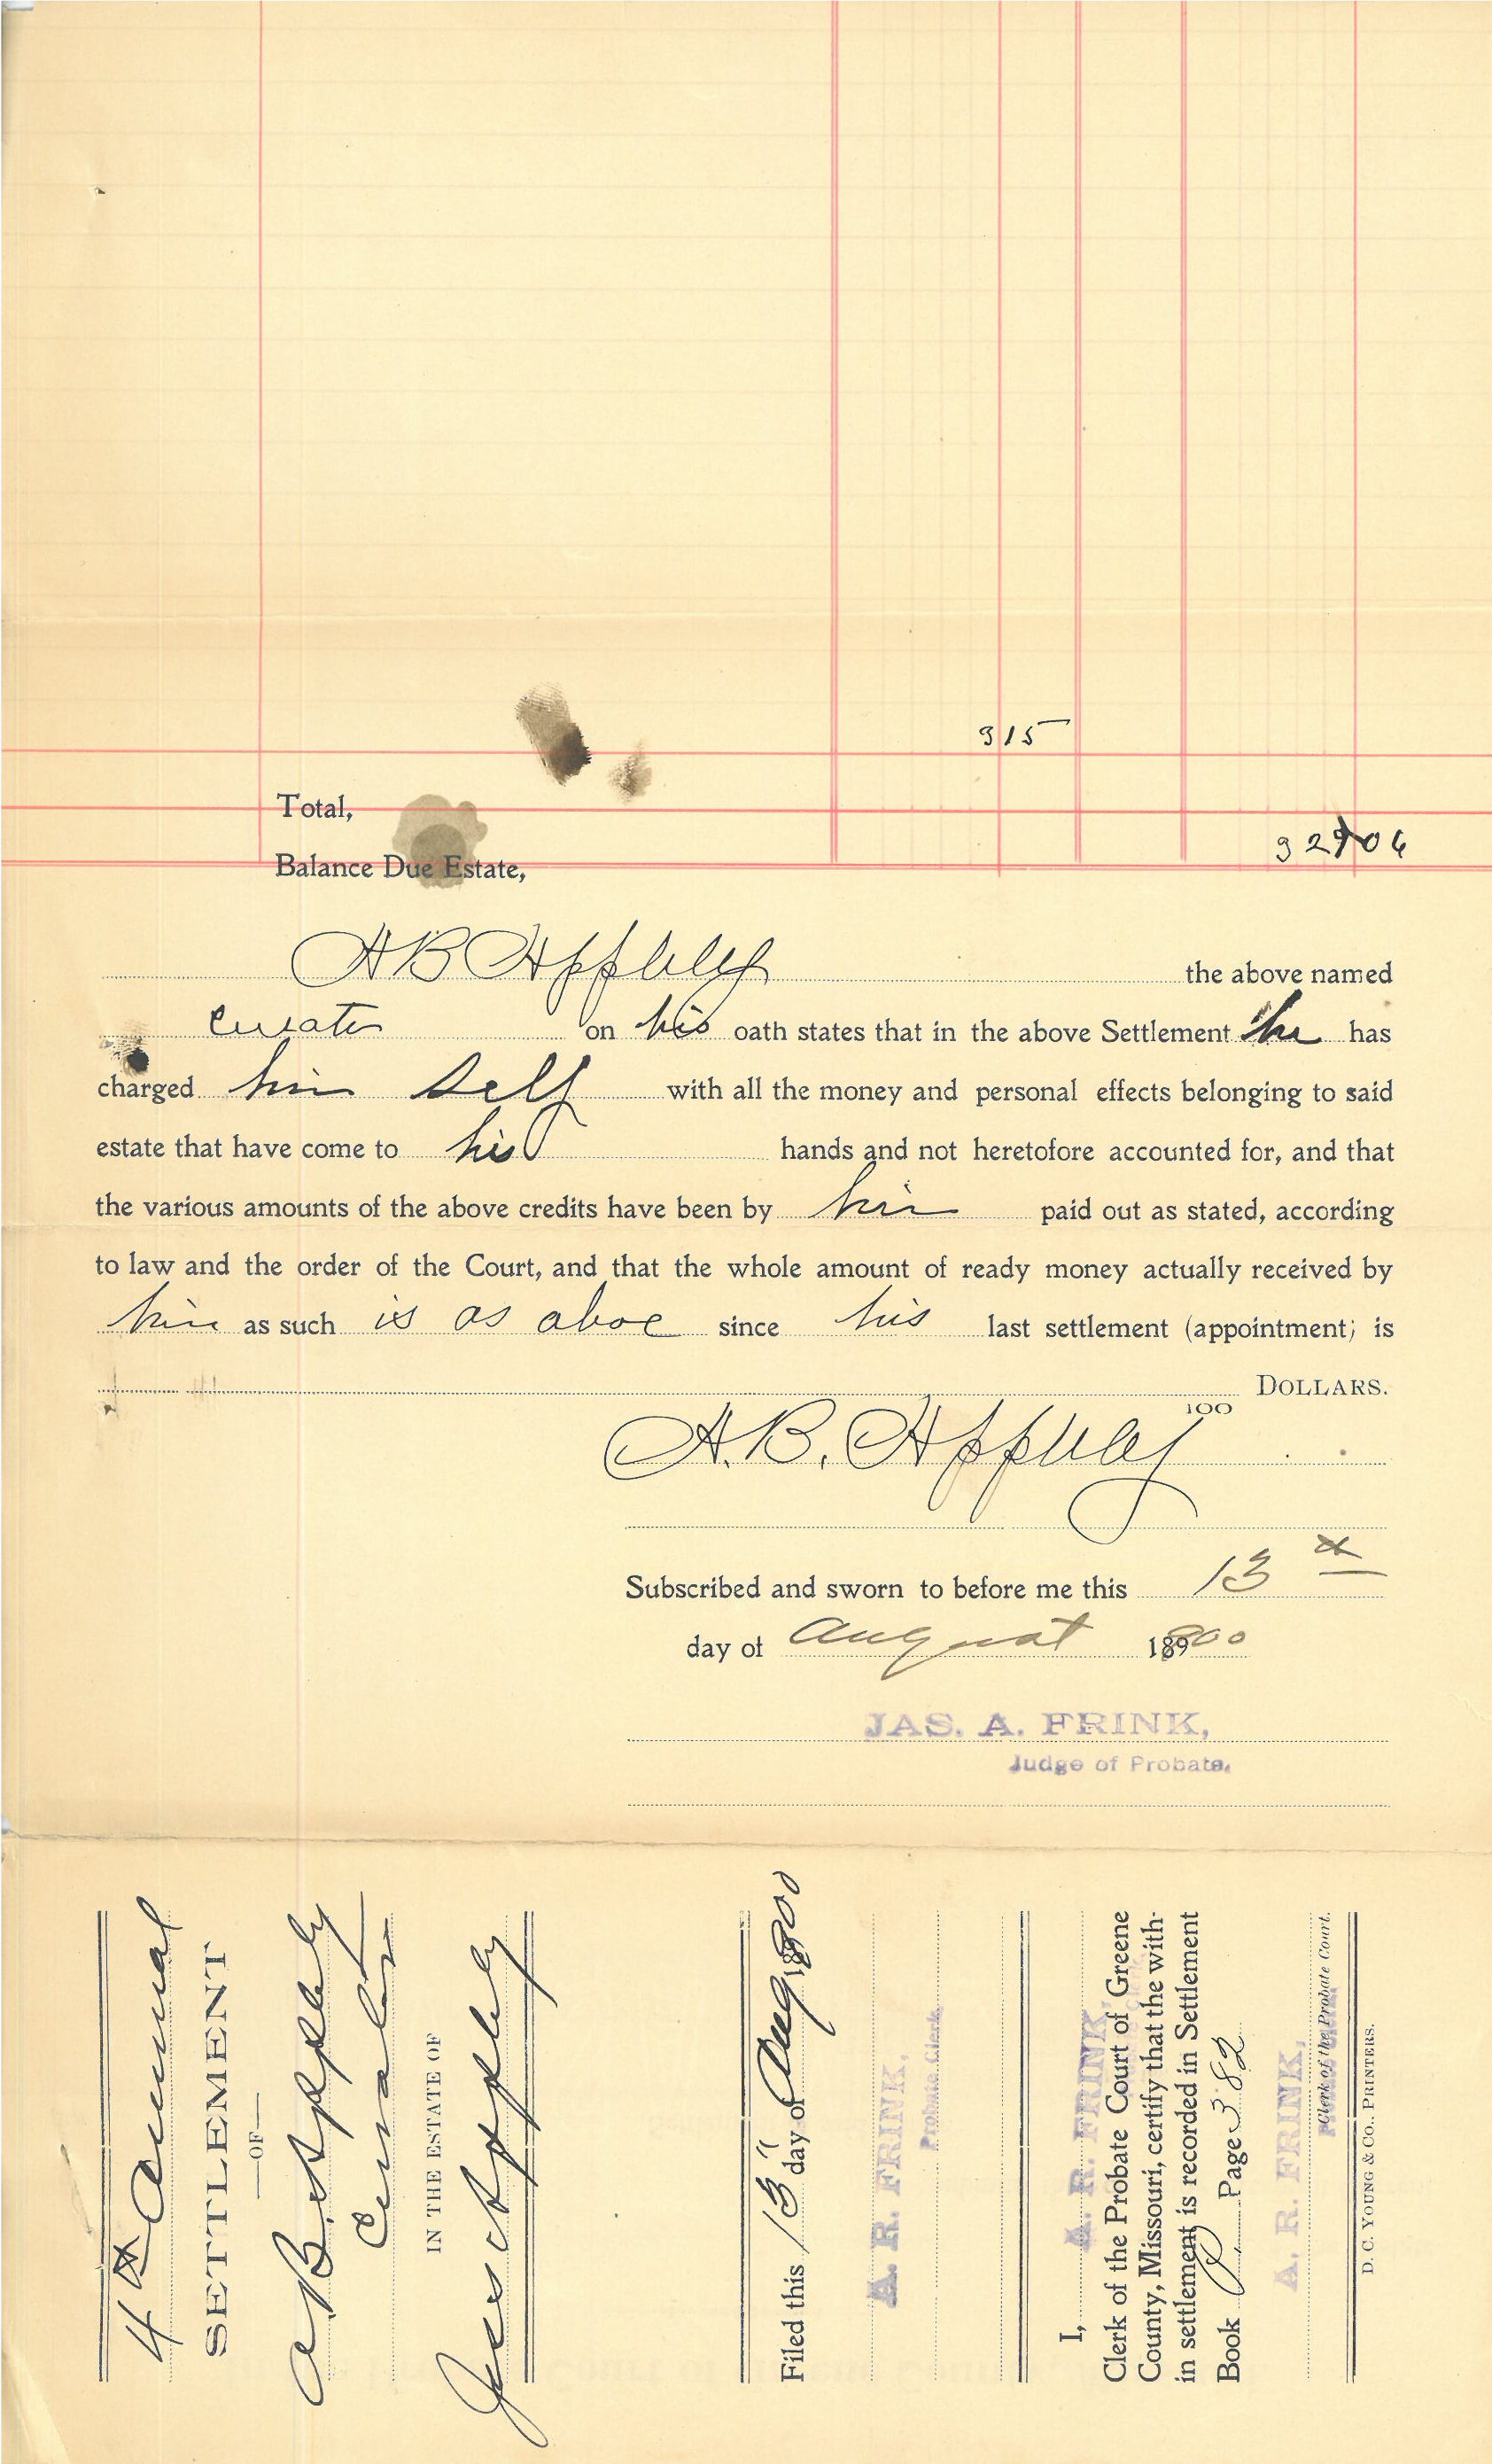 3 15
Total,
32906
Balance Due Estate,
A B Appleby the above named
Curator on his oath states that in the above Settlement he has
charged him self with all the money and personal effects belonging to said
estate that have come to his hands and not heretofore accounted for, and that
the various amounts of the above credits have been by him paid out as stated, according
to law and the order of the Court, and that the whole amount of ready money actually received by
him as such is as above since his last settlement (appointment; is
DOLLARS.
100
A. B. Appleby
Subscribed and sworn to before me this 13th
day of August 1900
JAS. A. FRINK,
Judge of Probate.
4th Annual
SETTLEMENT
—OF—
A B. Appleby
Curator
IN THE ESTATE OF
Appleby
Filed this 13" day of Aug 1900
A. R. FRINK,
Probate Clerk.
I, A. R. FRINK,
Clerk of the Probate Court of Greene
County, Missouri, certify that the with-
in settlement is recorded in Settlement
Book Page 382
A. R. FRINK,
Clerk of the Probate Court.
D. C. YOUNG & CO., PRINTERS.